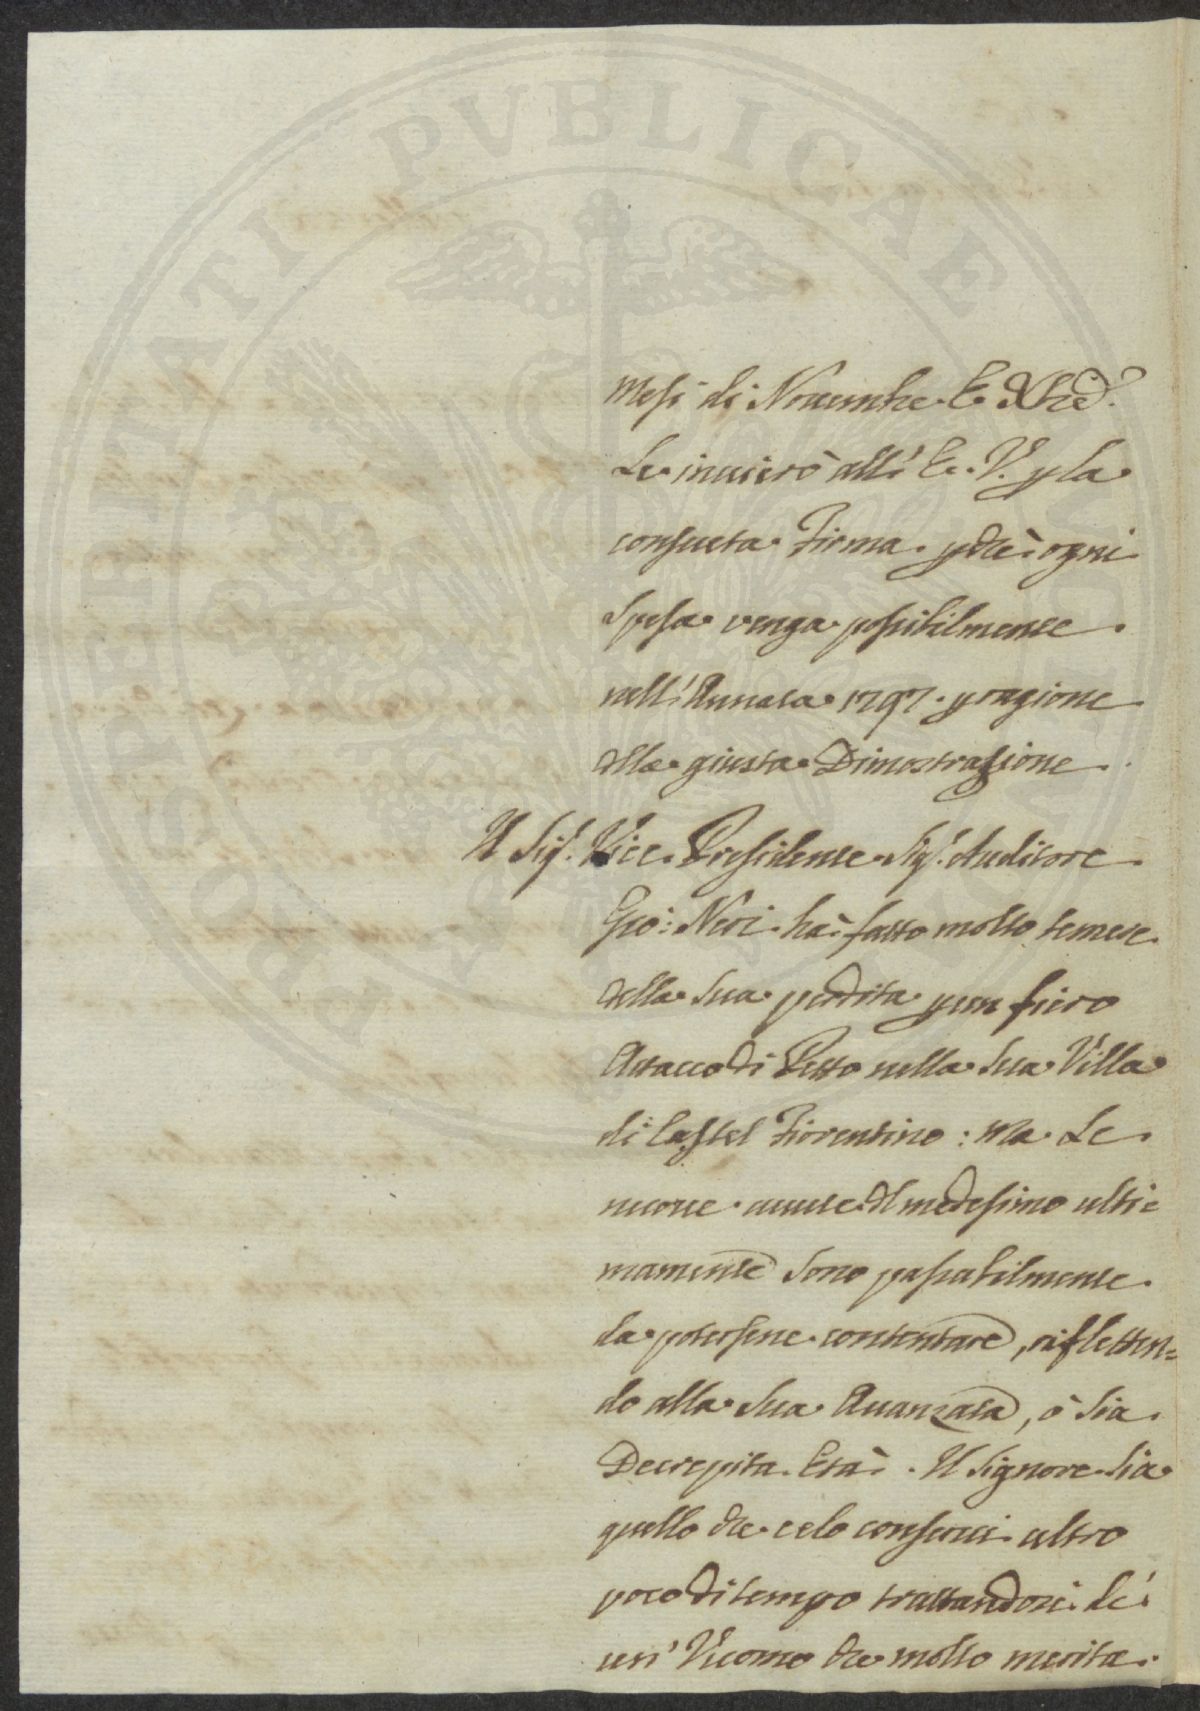 Mesi di Novembre. E. Xbre.
Le invierò all'E. V. p la
consueta Firma. pchè ogni
Spesa venga possibilmente
nell'Annata 1797. p ragione
della giusta Dimostrazione.
Il Sig.r Vice. Presidente Sig.r Auditore
Gio: Neri. hà fatto molto temere
della Sua perdita p un fiero
Attacco di Petto nella Sua Villa
di Castel Fiorentino: Ma Le
nuove avute del medesimo ulti=
mamente Sono passabilmente
da potersene contentare, rifletten=
do alla Sua Avanzata, ò Sia
Decrepita Età. Il Signore Sia
quello che celo conservi altro
poco di tempo trattandosi dé
un' Uomo che molto merita.